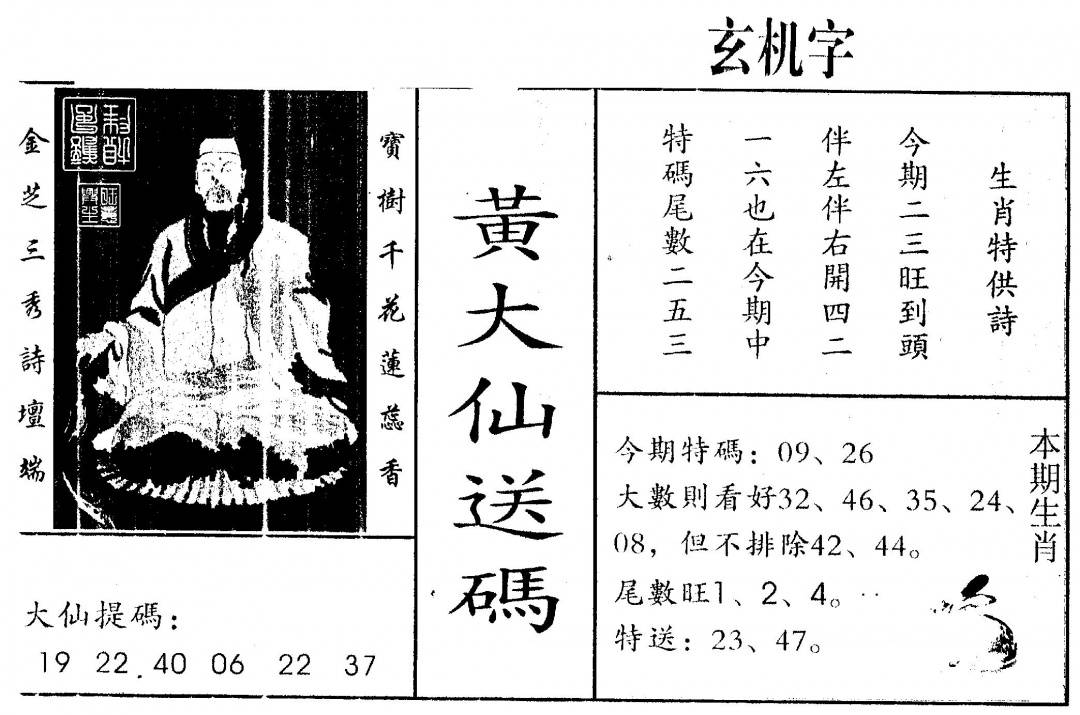 玄机字
寶樹千花蓮蕊香
金芝三秀詩壇端
黃大仙送碼
生肖特供詩
今期二三旺到頭
伴左伴右開四二
一六也在今期中
特碼尾數二五三
本期生肖
今期特碼：09、26
大數則看好32、46、35、24、
08，但不排除42、44。
尾數旺1、2、4。
特送：23、47。
大仙提碼：
19 22.40 06 22 37